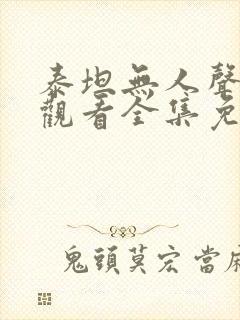 泰坦無人聲
觀看全集免
鬼頭莫宏當麻